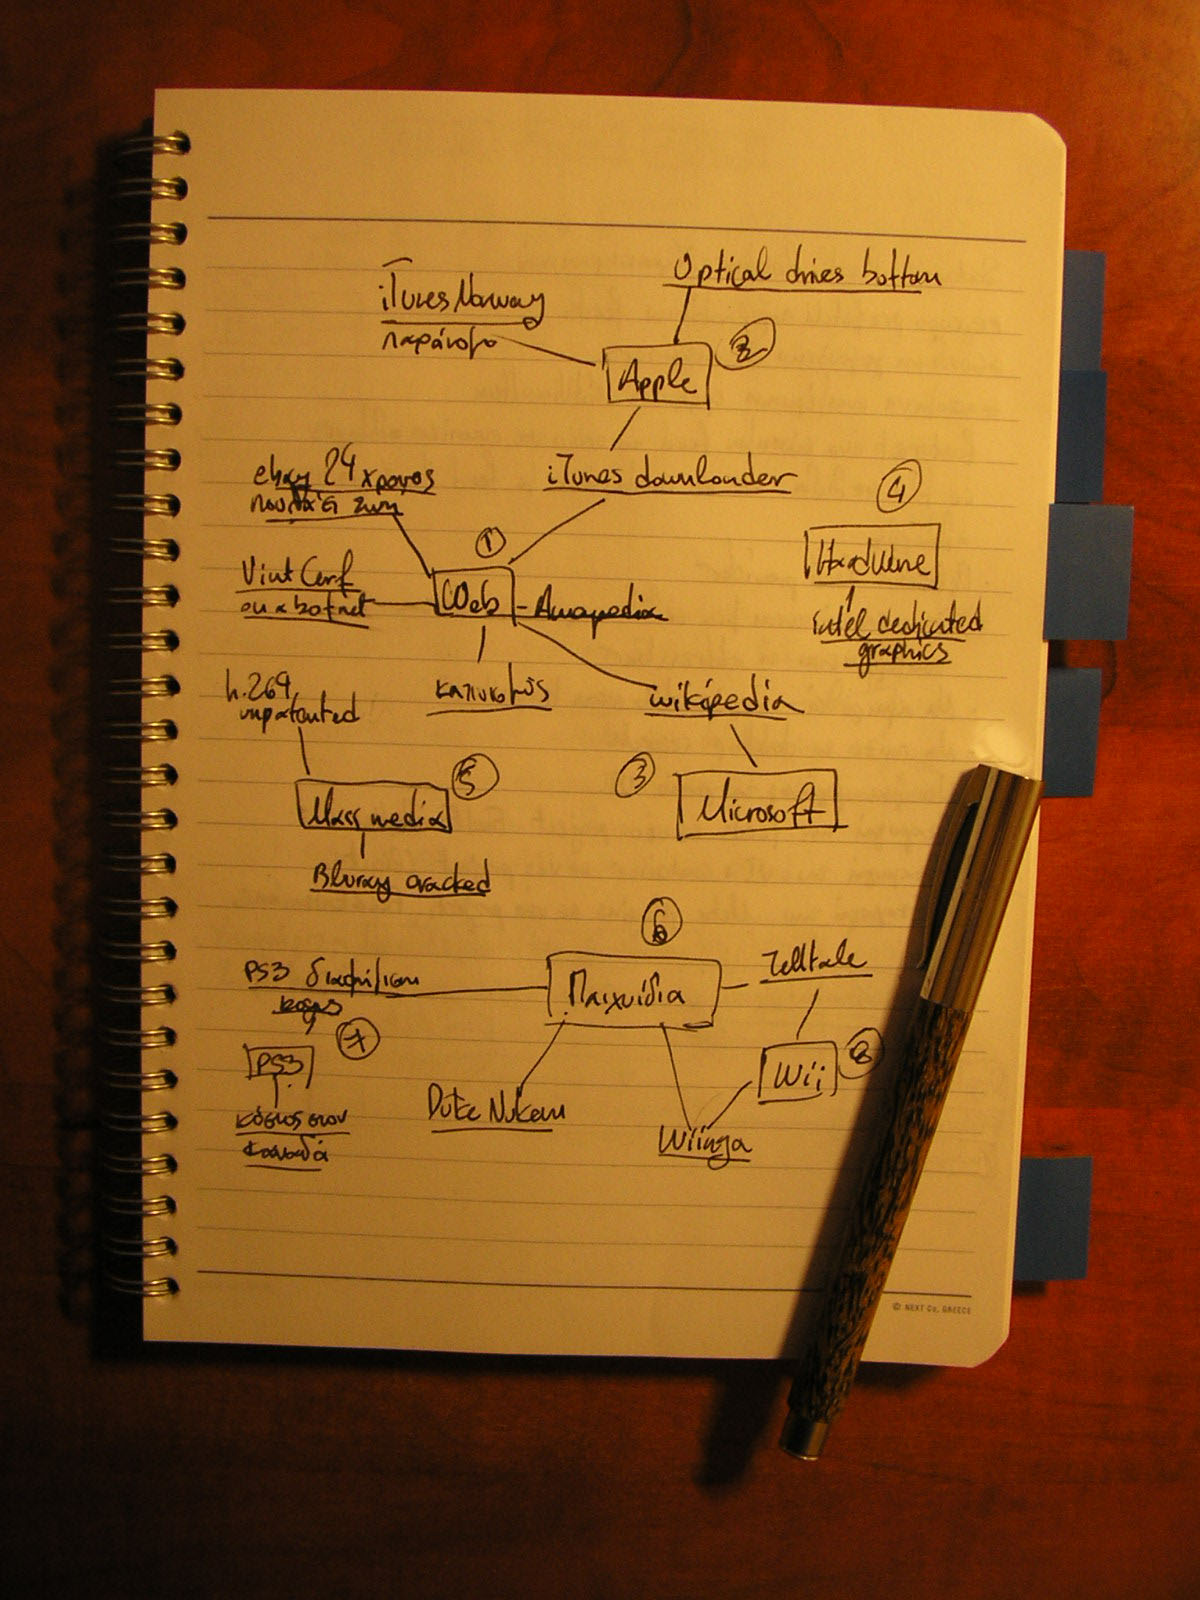 Optical drives bottom
iTunes Norway
παράνομο
2
Apple
ebay 24 χρονος
πουλάει ζωη
iTunes downloader
4
1
Hardware
Vint Cerf
Web
Amapedia
botnet
Intel dedicated
graphics
h.264
unpatented
καπνισμός
wikipedia
5
3
Mass media
Microsoft
Bluray cracked
6
PS3 διαφήμιση
Παιχνίδια
Telltale
7
8
PS3
Wii
κόστος στον
Καναδά
Duke Nukem
Wiinja
© NEXT Co, GREECE